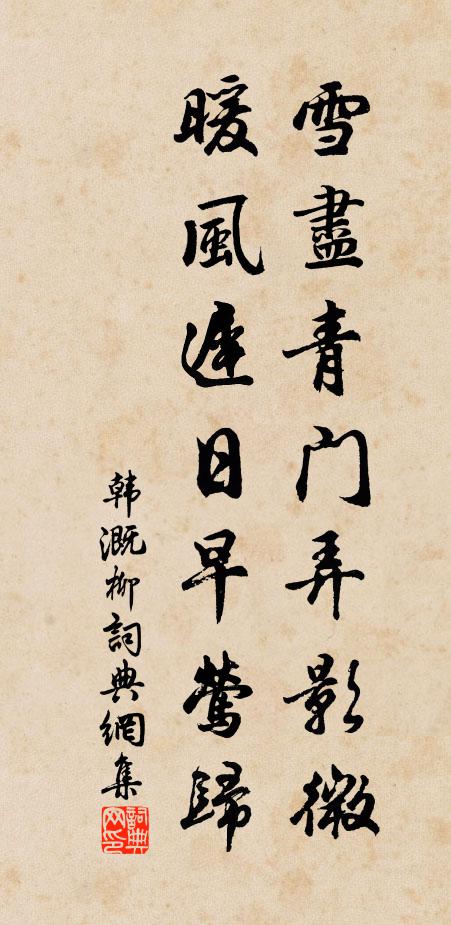 雪盡青门弄影微
暖風遲日早鶯歸
韩溉柳詞典網集
詞典网印